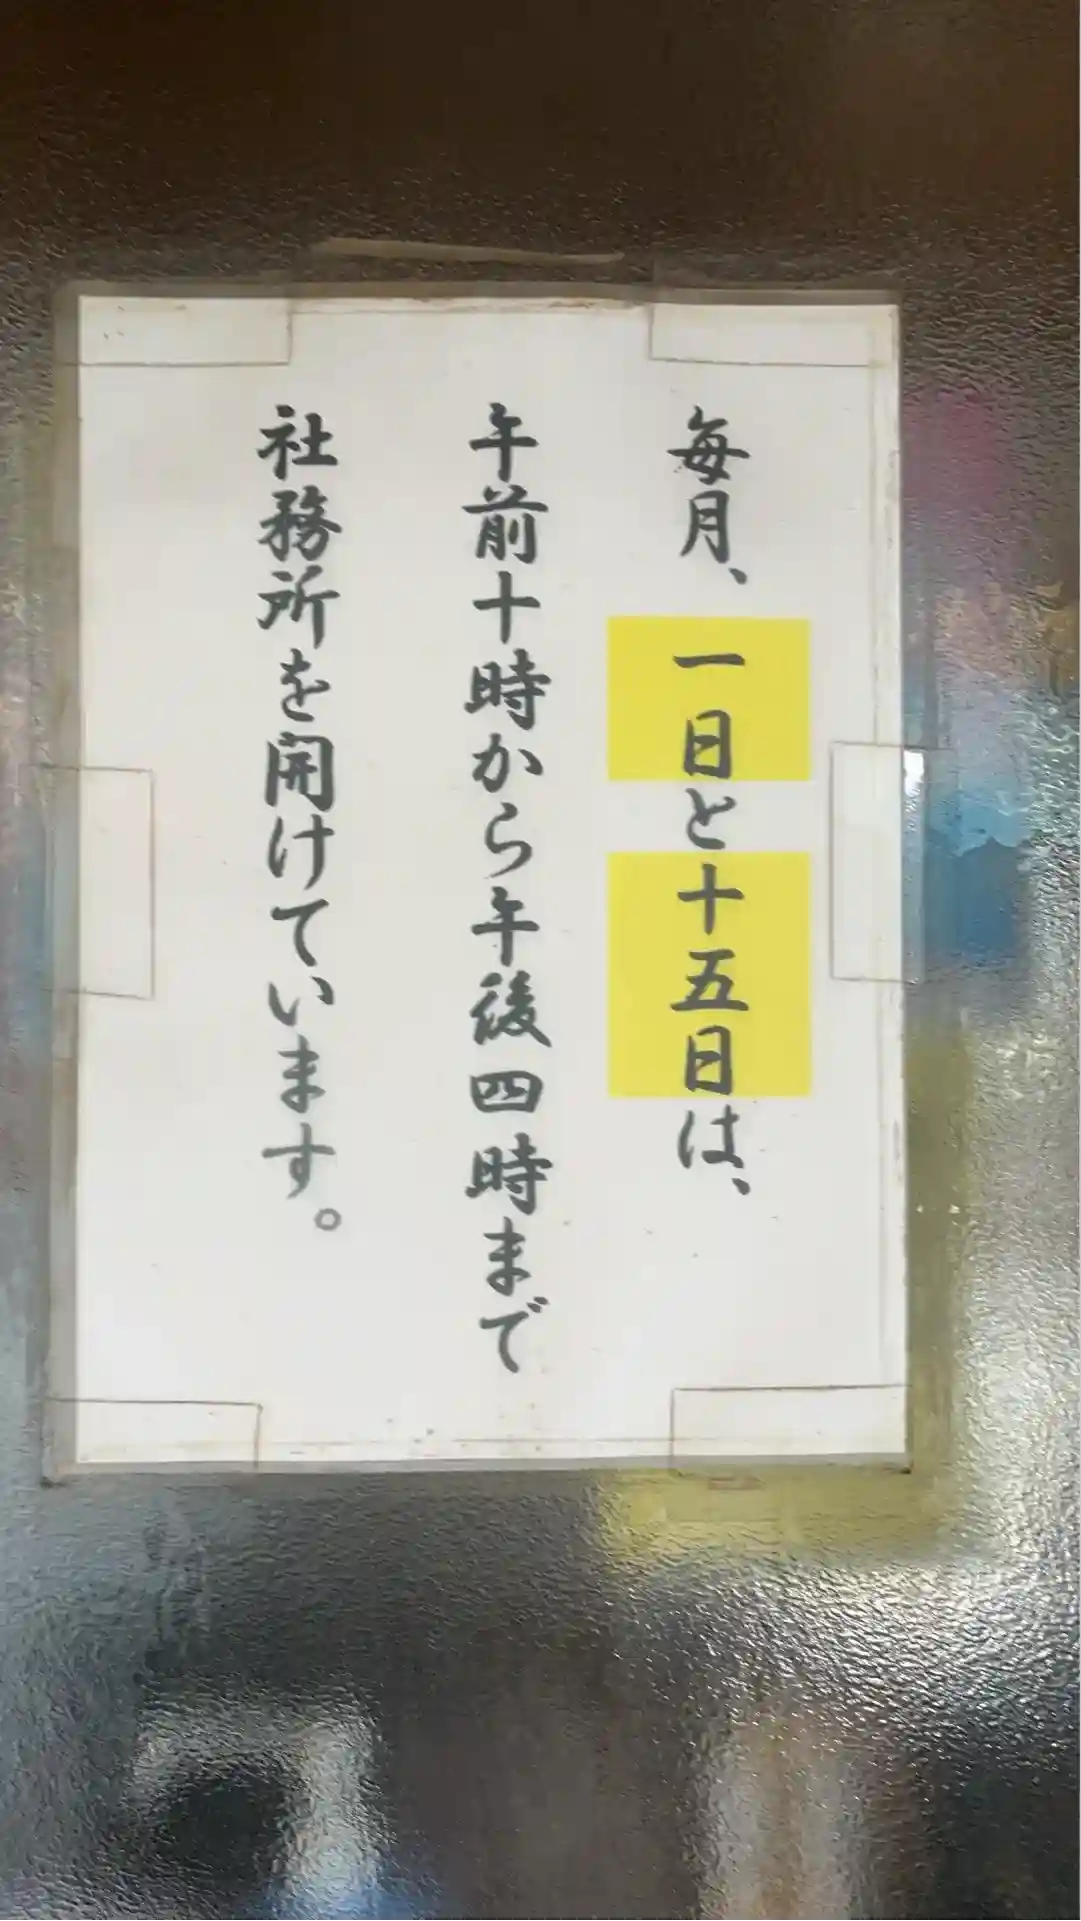 毎月、一日と十五日は、
午前十時から午後四時まで
社務所を開けています。